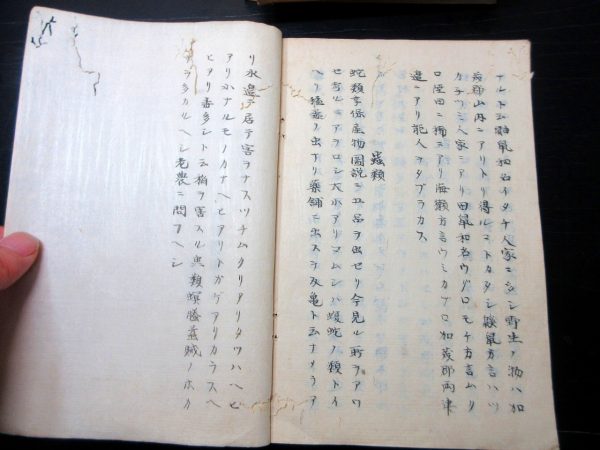 ナルトム鼬鼠和名イタチ人家ニ多シ野生ノ物ハ加
茂郡山内ニアリトリ得ルコトカタシ鼷鼠方言ハツ
カチツミ人家ニアリ田鼠和名ウグロモチ方言ムク
ロ陸田ニ稀ニアリ海獺方言ウミカブロ加茂郡両津
邊ニアリ能人ヲタブラカス
蟲類
蛇類享保産物圖説ニ五品ヲ出セリ今見ル所ヲアワ
セ考ルニアヲロシ大水アリマムシハ蝮蛇ノ類トイ
ヘリ猛毒ノ出アリ薬舗ニ出ス灰亀ト云ナメラア
リ水邉ニ居テ害ヲナスツチムクリアリタワハヘビ
アリ小ナルモノカナヘビアリトカゲアリカラスヘ
ビアリ毒多シト云稲ヲ害スル虫類螟螣蟊賊ノホカ
ナヲ多カルヘシ老農ニ問フヘシ